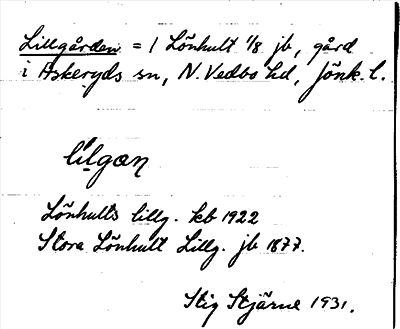 Lillgården = 1 Lönhult 1/8 jb, gård
i Askeryds sn, N. Vedbo hd, Jönk. l.
Lönhults lillg. kb 1922
Stora Lönhult Lillg. jb 1877.
Stig Stjärne 1931.